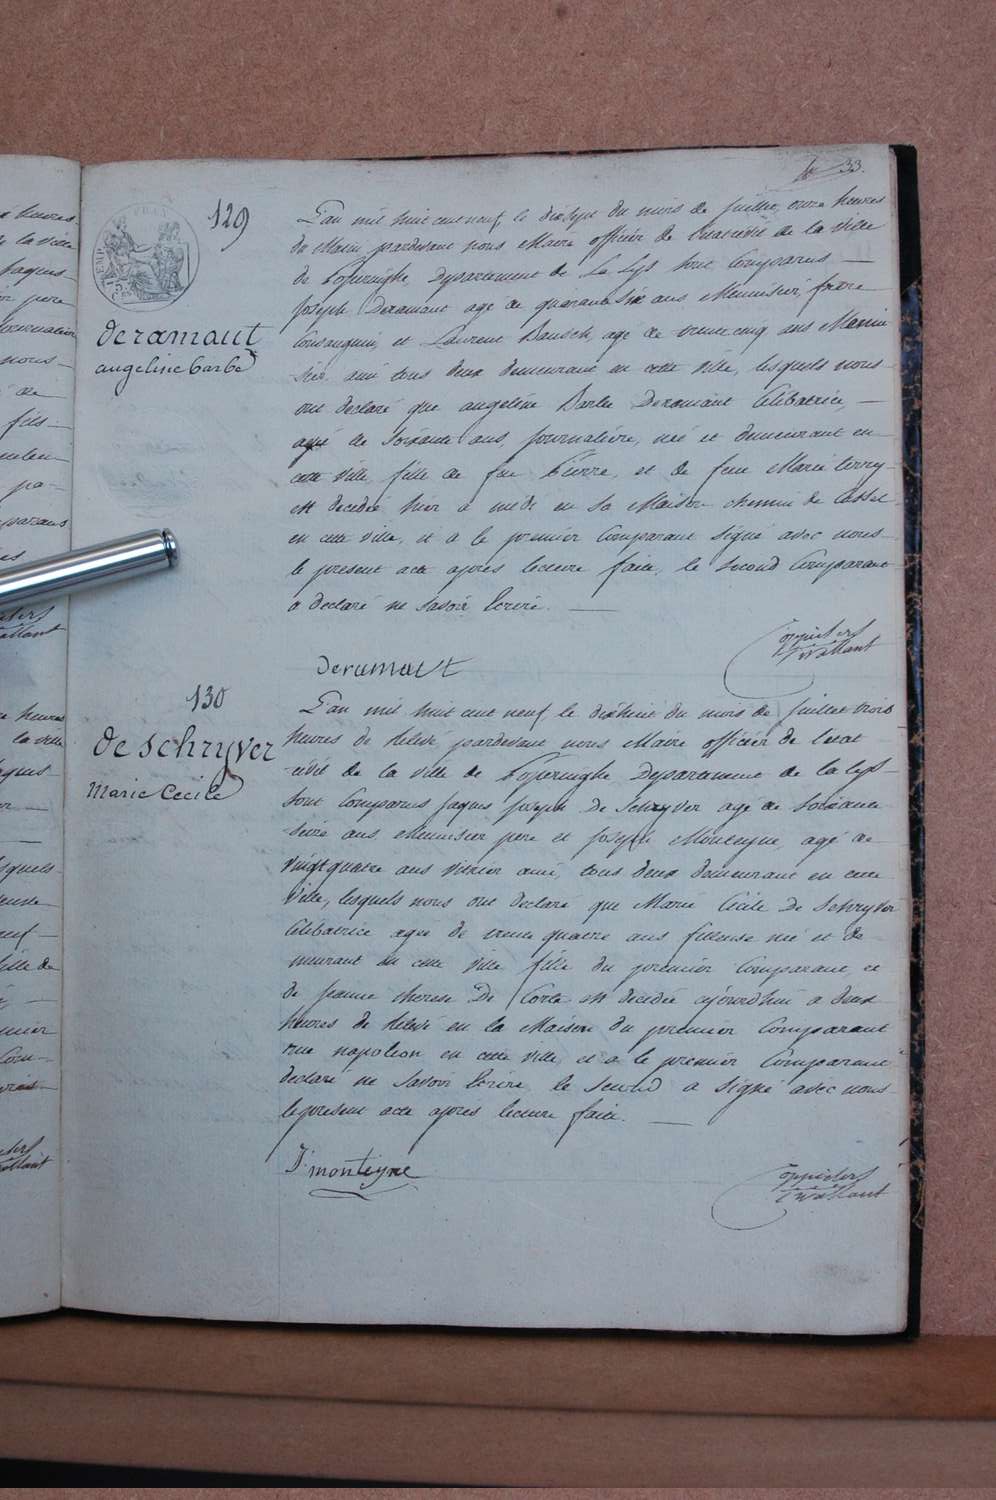 33.
129
deramaut
angeline barbe
L'an mil huit cent neuf, le dix sept du mois de Juillet, onze heures
du Matin pardevant nous Maire officier de l'état civil de la ville
de Poperinghe Departement de la Lys sont Comparus —
Joseph Deramaut agé de quarante six ans Menuisier, frère
Consanguin, et Laurent Bausch, agé de trente cinq ans Menui
sier, ami tous deux demeurant en cette ville, lesquels nous
ont declaré que angeline Barbe Deramaut Célibatrice, —
agée de soixante ans, journalière, née et demeurant en
cette ville, fille de feu Pierre, et de feue Marie terry
est decedée hier à midi en sa Maison chemin de Cassel
en cette ville, et a le premier Comparant signé avec nous
le present acte après lecture faite, le second Comparant
a declaré ne savoir Ecrire. —
deramault
130
De Schryver
Marie Cecile
L'an mil huit cent neuf le dixhuit du mois de Juillet trois
heures de relevé, pardevant nous Maire officier de l'état
civil de la ville de Poperinghe Departement de la Lys
sont Comparus Jaques Joseph De Schryver agé de soixante
seize ans Menuisier pere et Joseph Monteyne, agé de
vingt quatre ans vitrier ami, tous deux demeurant en cette
ville, lesquels nous ont declaré que Marie Cécile De Schryver
Célibatrice agée de trente quatre ans fileuse née et de
meurant en cette ville fille du premier Comparant, et
de Jeanne therese De Corte est decedée ajourdhui a deux
heures de relevé en la Maison du premier Comparant
rue napoleon en cette ville, et a le premier Comparant
declaré ne savoir Ecrire, le second a signé avec nous
le present acte apres lecture faite. —
J. monteyne